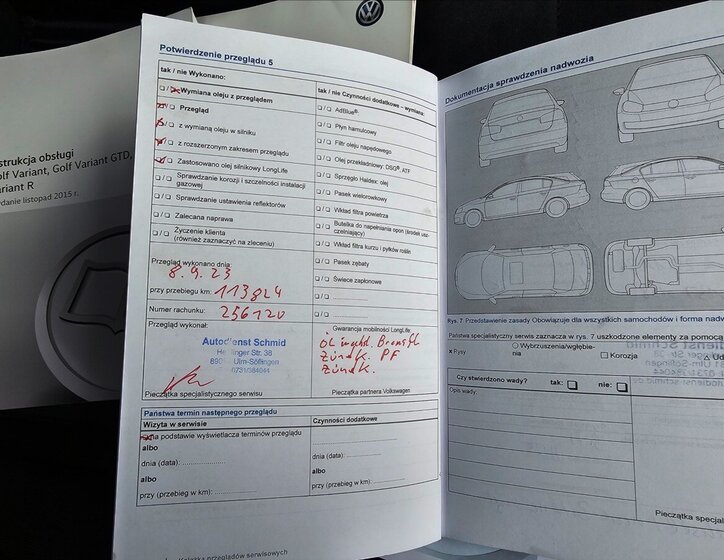 strukcja obsługi
olf Variant, Golf Variant GTD,
ariant R
ydanie listopad 2015 r.
Potwierdzenie przeglądu 5
tak / nie Wykonano:
❑ / ❑ Wymiana oleju z przeglądem
❑ / ❑ Przegląd
❑ / ❑ z wymianą oleju w silniku
❑ / ❑ z rozszerzonym zakresem przeglądu
❑ / ❑ Zastosowano olej silnikowy LongLife
❑ / ❑ Sprawdzanie korozji i szczelności instalacji
gazowej
❑ / ❑ Sprawdzanie ustawienia reflektorów
❑ / ❑ Zalecana naprawa
❑ / ❑ Życzenie klienta
(również zaznaczyć na zleceniu)
Przegląd wykonano dnia:
8.9.23
przy przebiegu km: 113824
Numer rachunku: 256120
Przegląd wykonał:
Autodienst Schmid
Str. 38
Ulm-Söflingen
0731/384044
Pieczątka specjalistycznego serwisu
tak / nie Czynności dodatkowe – wymiana:
❑ / ❑ AdBlue®
❑ / ❑ Płyn hamulcowy
❑ / ❑ Filtr oleju napędowego
❑ / ❑ Olej przekładniowy: DSG®, ATF
❑ / ❑ Sprzęgło Haldex: olej
❑ / ❑ Pasek wielorowkowy
❑ / ❑ Wkład filtra powietrza
❑ / ❑ Butelka do napełniania opon (środek uszczelniający)
❑ / ❑ Wkład filtra kurzu i pyłków roślin
❑ / ❑ Pasek zębaty
❑ / ❑ Świece zapłonowe
❑ / ❑
❑ / ❑
Gwarancja mobilności LongLife
Zündk. PF
Zündk.
Pieczątka partnera Volkswagen
Państwa termin następnego przeglądu
Wizyta w serwisie
Czynności dodatkowe
na podstawie wyświetlacza terminów przeglądu
albo
dnia (data):
albo
przy (przebieg w km):
dnia (data):
albo
przy (przebieg w km):
Książka przeglądów serwisowych
Dokumentacja sprawdzenia nadwozia
Rys. 7 Przedstawienie zasady Obowiązuje dla wszystkich samochodów i forma nadw
Państwa specjalistyczny serwis zaznacza w rys. 7 uszkodzone elementy za pomocą
x Rysy
O Wybrzuszenia/wgłębienia
❑ Korozja
Czy stwierdzono wady?
tak:
nie:
Opis wady:
Pieczątka specjal